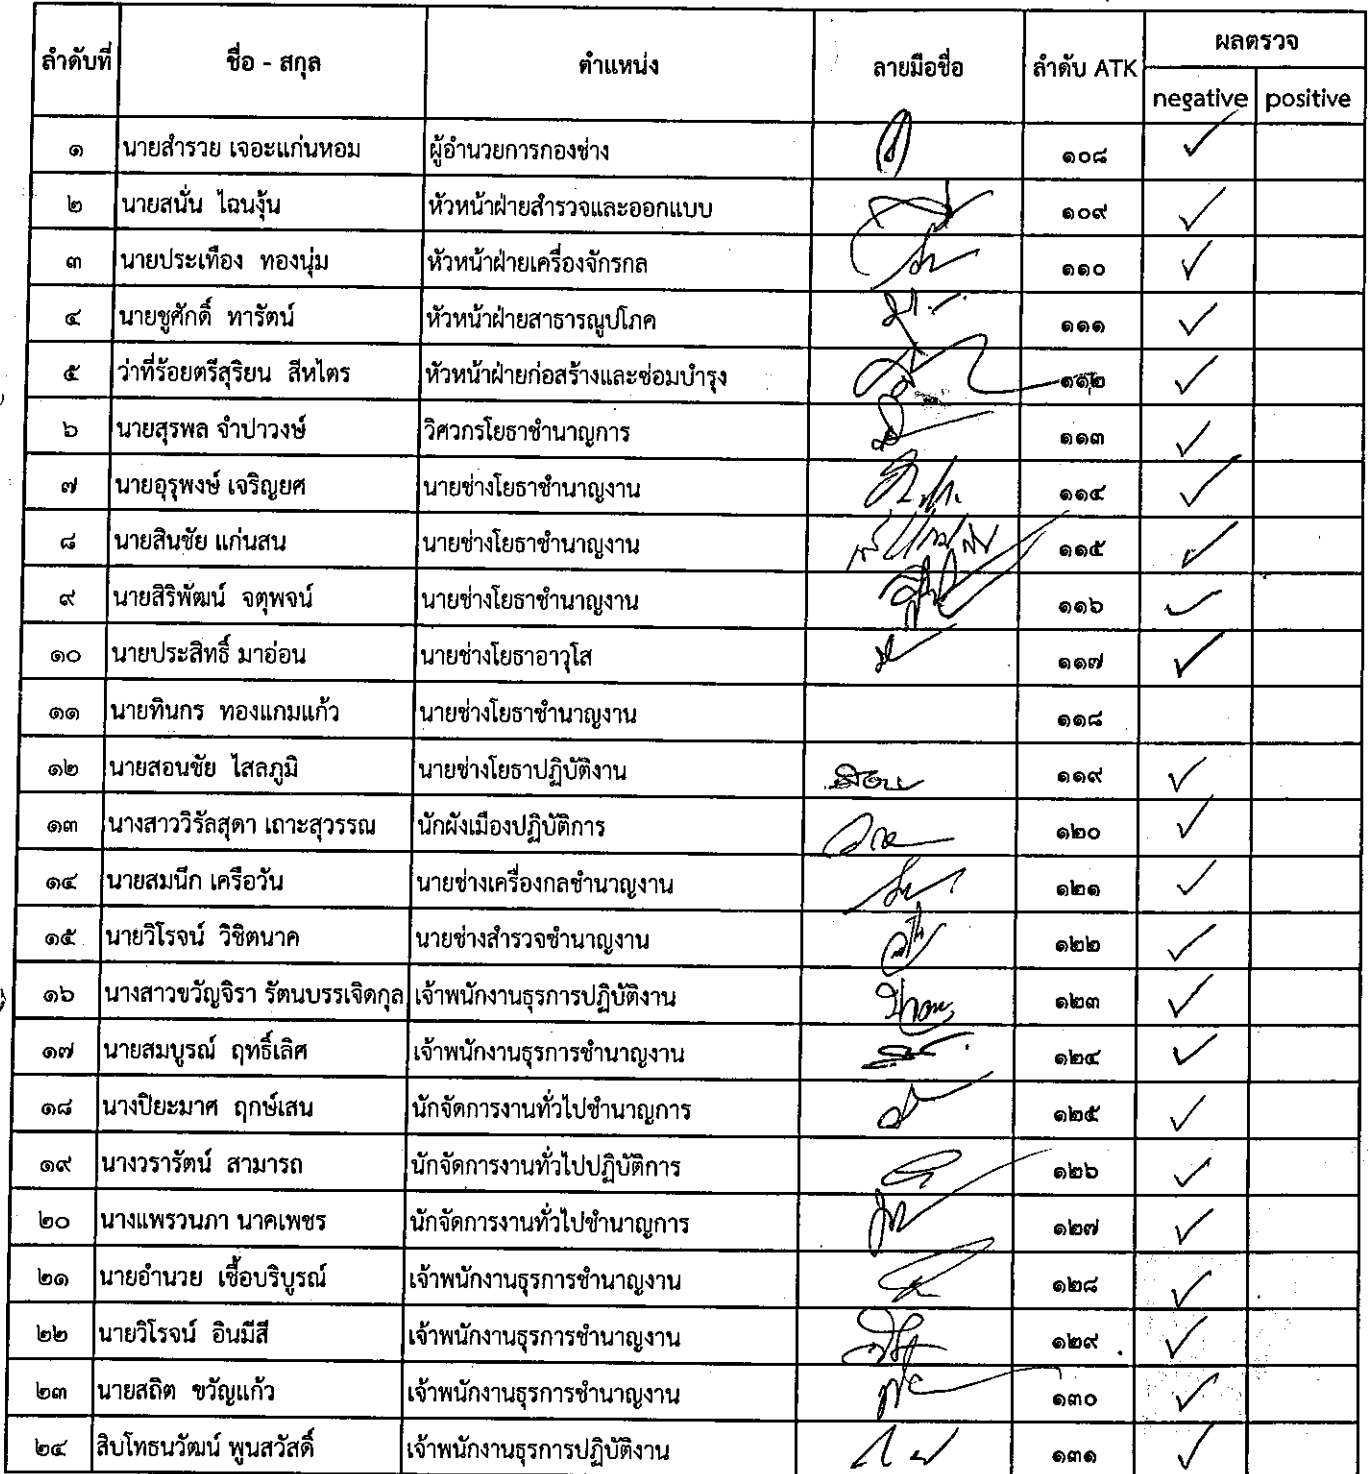 ลำดับที่ ชื่อ - สกุล ตำแหน่ง ลายมือชื่อ ลำดับ ATK ผลตรวจ
negative positive
๑ นายสำรวย เจอะแก่นหอม ผู้อำนวยการกองช่าง ๑๐๘ ✓
๒ นายสนั่น ไฉนงุ้น หัวหน้าฝ่ายสำรวจและออกแบบ ๑๐๙ ✓
๓ นายประเทือง ทองนุ่ม หัวหน้าฝ่ายเครื่องจักรกล ๑๑๐ ✓
๔ นายชูศักดิ์ ทารัตน์ หัวหน้าฝ่ายสาธารณูปโภค ๑๑๑ ✓
๕ ว่าที่ร้อยตรีสุริยน สีหไตร หัวหน้าฝ่ายก่อสร้างและซ่อมบำรุง ๑๑๒ ✓
๖ นายสุรพล จำปาวงษ์ วิศวกรโยธาชำนาญการ ๑๑๓ ✓
๗ นายอุรุพงษ์ เจริญยศ นายช่างโยธาชำนาญงาน ๑๑๔ ✓
๘ นายสินชัย แก่นสน นายช่างโยธาชำนาญงาน ๑๑๕ ✓
๙ นายสิริพัฒน์ จตุพจน์ นายช่างโยธาชำนาญงาน ๑๑๖ ✓
๑๐ นายประสิทธิ์ มาอ่อน นายช่างโยธาอาวุโส ๑๑๗ ✓
๑๑ นายทินกร ทองแกมแก้ว นายช่างโยธาชำนาญงาน ๑๑๘
๑๒ นายสอนชัย ไสลภูมิ นายช่างโยธาปฏิบัติงาน ๑๑๙ ✓
๑๓ นางสาววิรัลสุดา เถาะสุวรรณ นักผังเมืองปฏิบัติการ ๑๒๐ ✓
๑๔ นายสมนึก เครือวัน นายช่างเครื่องกลชำนาญงาน ๑๒๑ ✓
๑๕ นายวิโรจน์ วิชิตนาค นายช่างสำรวจชำนาญงาน ๑๒๒ ✓
๑๖ นางสาวขวัญจิรา รัตนบรรเจิดกุล เจ้าพนักงานธุรการปฏิบัติงาน ๑๒๓ ✓
๑๗ นายสมบูรณ์ ฤทธิ์เลิศ เจ้าพนักงานธุรการชำนาญงาน ๑๒๔ ✓
๑๘ นางปิยะมาศ ฤกษ์เสน นักจัดการงานทั่วไปชำนาญการ ๑๒๕ ✓
๑๙ นางวรารัตน์ สามารถ นักจัดการงานทั่วไปปฏิบัติการ ๑๒๖ ✓
๒๐ นางแพรวนภา นาคเพชร นักจัดการงานทั่วไปชำนาญการ ๑๒๗ ✓
๒๑ นายอำนวย เชื้อบริบูรณ์ เจ้าพนักงานธุรการชำนาญงาน ๑๒๘ ✓
๒๒ นายวิโรจน์ อินมีสี เจ้าพนักงานธุรการชำนาญงาน ๑๒๙ ✓
๒๓ นายสถิต ขวัญแก้ว เจ้าพนักงานธุรการชำนาญงาน ๑๓๐ ✓
๒๔ สิบโทธนวัฒน์ พูนสวัสดิ์ เจ้าพนักงานธุรการปฏิบัติงาน ๑๓๑ ✓